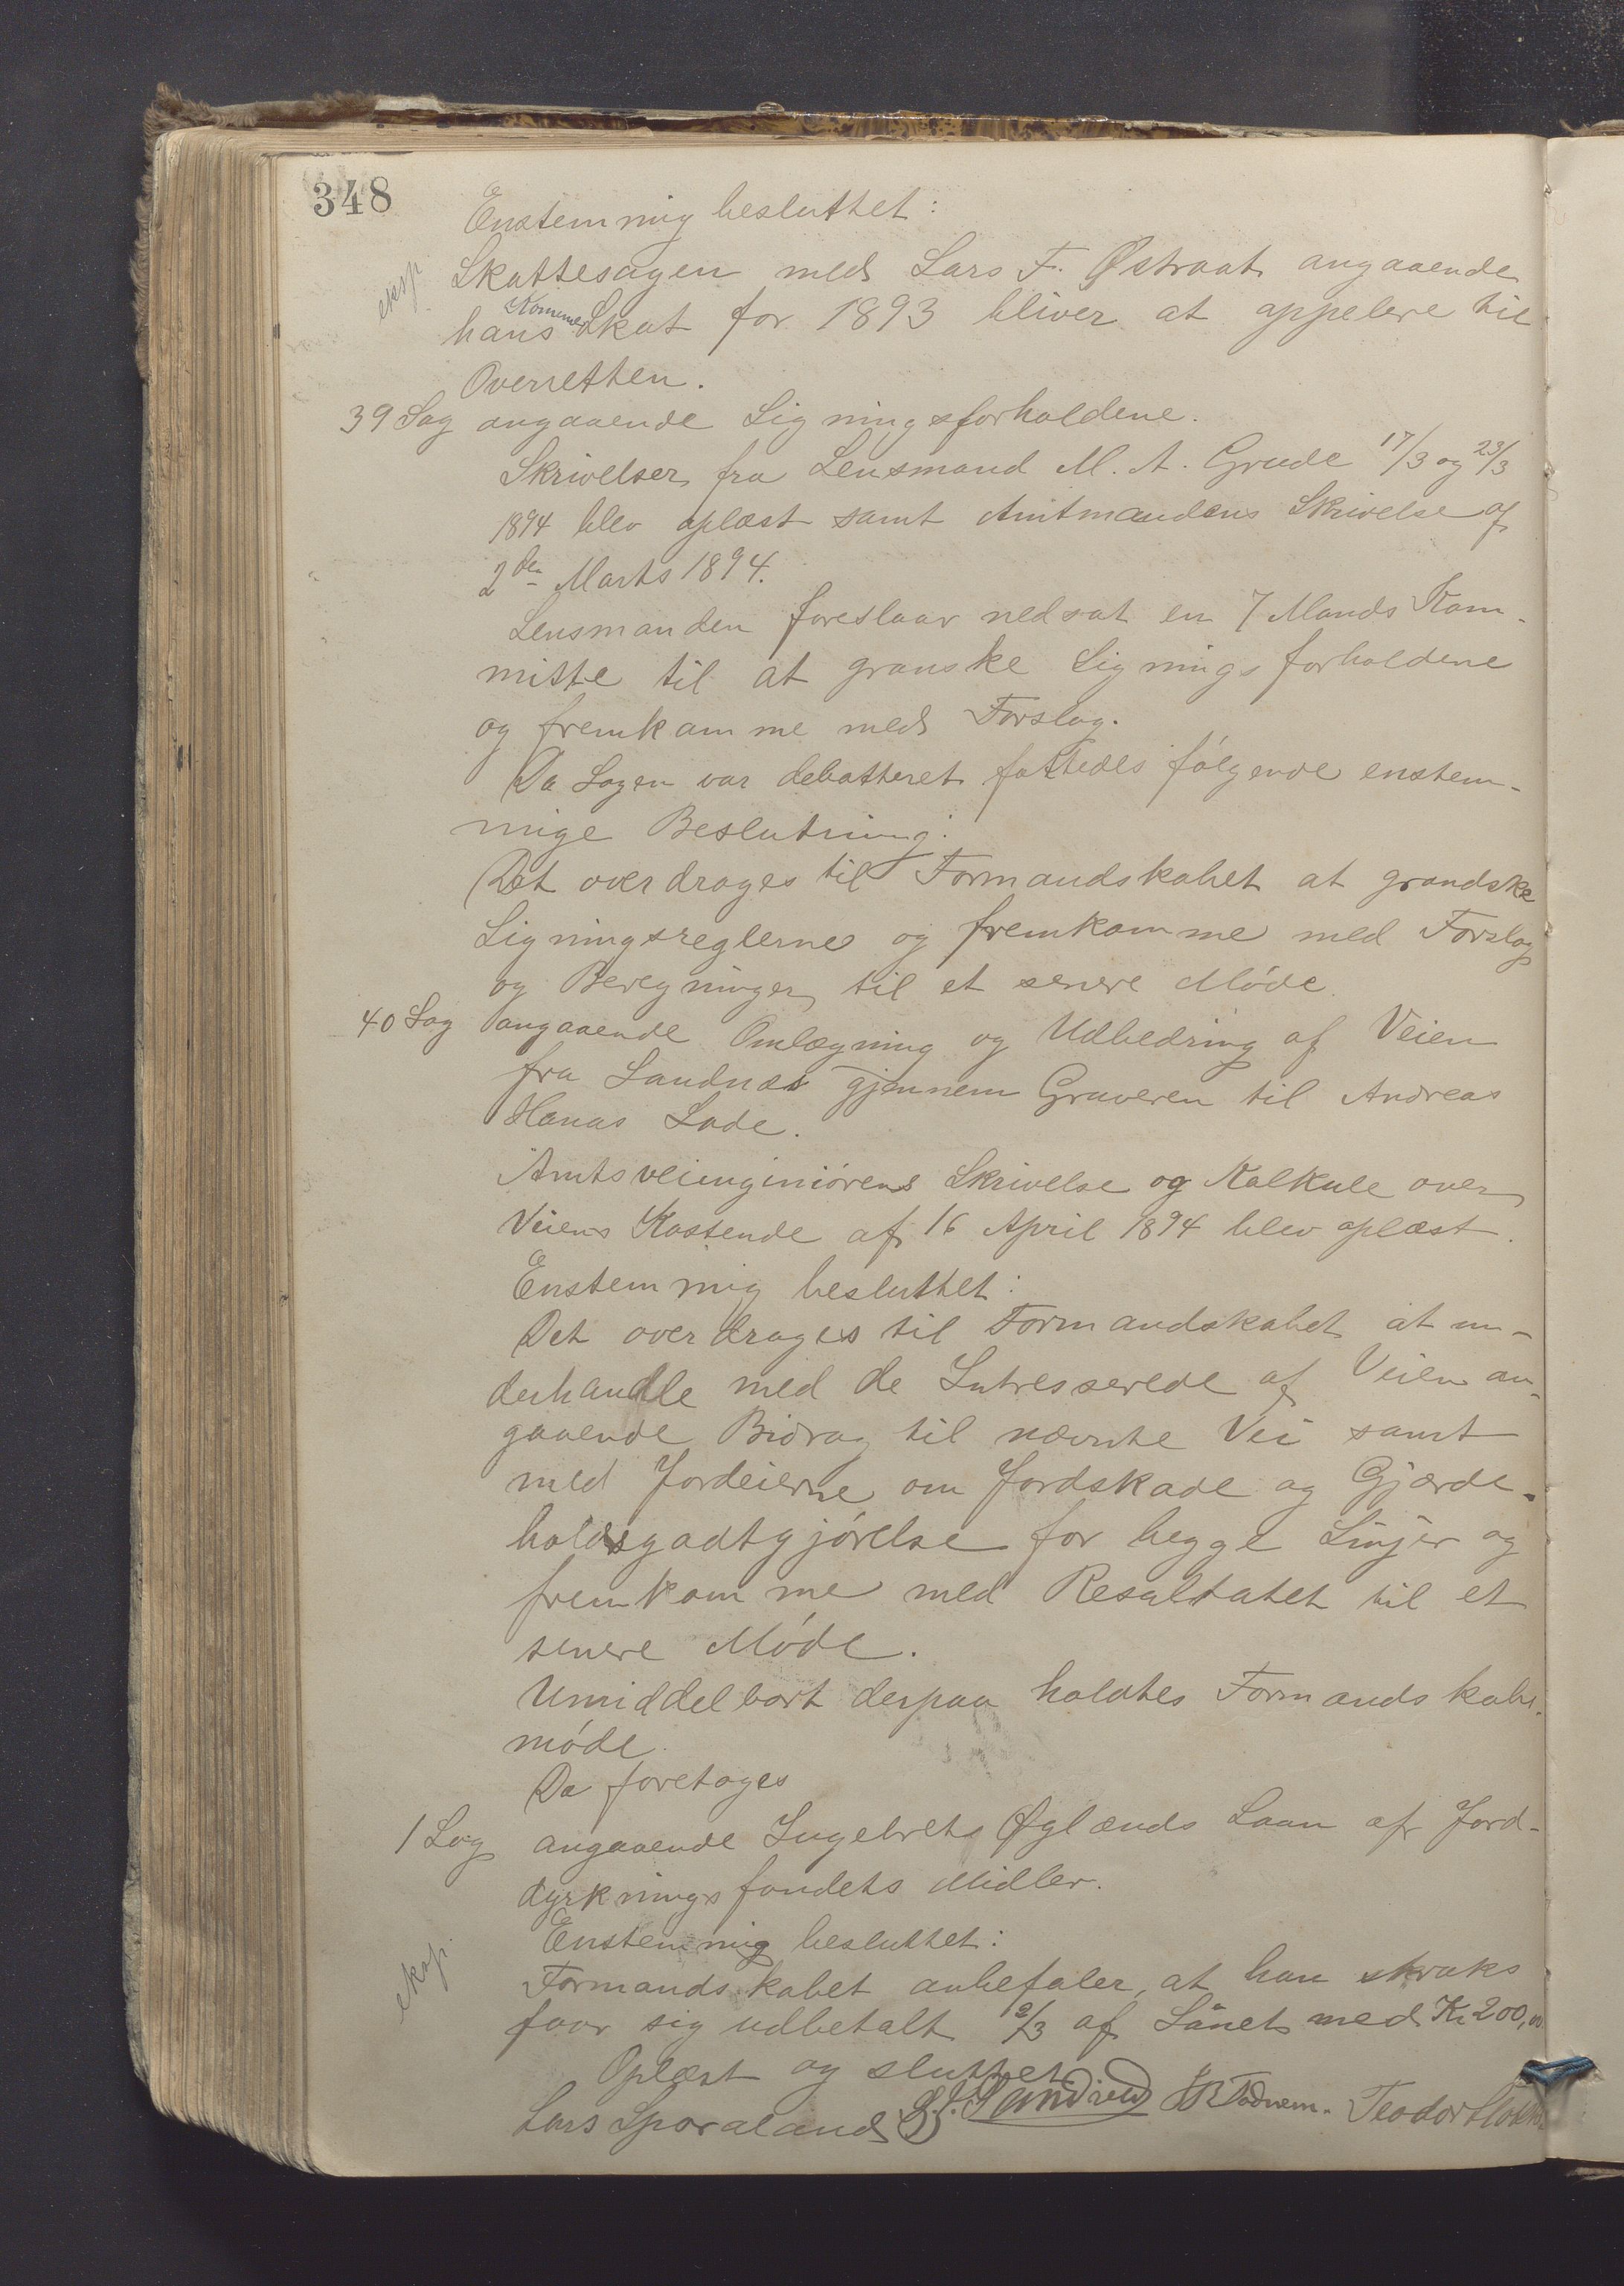 348
Enstemmig besluttet:
eksp
Skattesagen med Lars F. Østraat angaaende
hans Kommeskat for 1893 bliver at appelere til
Overretten.
39 Sag angaaende Ligningsforholdene.
Skrivelser fra Lensmand M. A. Grude 17/3 og 23/3
1894 blev oplæst samt Amtmandens Skrivelse af
2den Marts 1894.
Lensmanden foreslaar nedsat en 7 Mands Kom-
mitte til at granske Ligningsforholdene
og fremkomme med Forslag.
Da Sagen var debatteret fattedes følgende enstem-
mige Beslutning:
Det overdrages til Formandskabet at grandske
Ligningsreglerne og fremkomme med Forslag
og Beregninger til et senere Møde.
40 Sag angaaende Omlægning og Udbedring af Veien
fra Sandnes gjennem Graveren til Andreas
Hanas Lade.
Amtsveiinginiørens Skrivelse og Kalkule over
Veiens Kostende af 16 April 1894 blev oplæst.
Enstemmig besluttet:
Det overdrages til Formandskabet at un-
derhandle med de Intresserede af Veien an-
gaaende Bidrag til nævnte Vei samt
med Jordeierne om Jordskade og Gjærde-
holdsgodtgjørelse for begge Linjer og
fremkomme med Resultatet til et
senere Møde.
Umiddelbart derpaa holdtes Formandskabs-
møde.
Da foretages
1 Sag angaaende Ingebrets Øglænds Laan af Jord-
dyrkningsfondets Midler.
Enstemmig besluttet:
eksp.
Formandskabet anbefaler, at han straks
faar sig udbetalt 2/3 af Lånet med Kr 200,00
Oplæst og sluttet
Lars Sporaland Sandved Todnem. Teodor